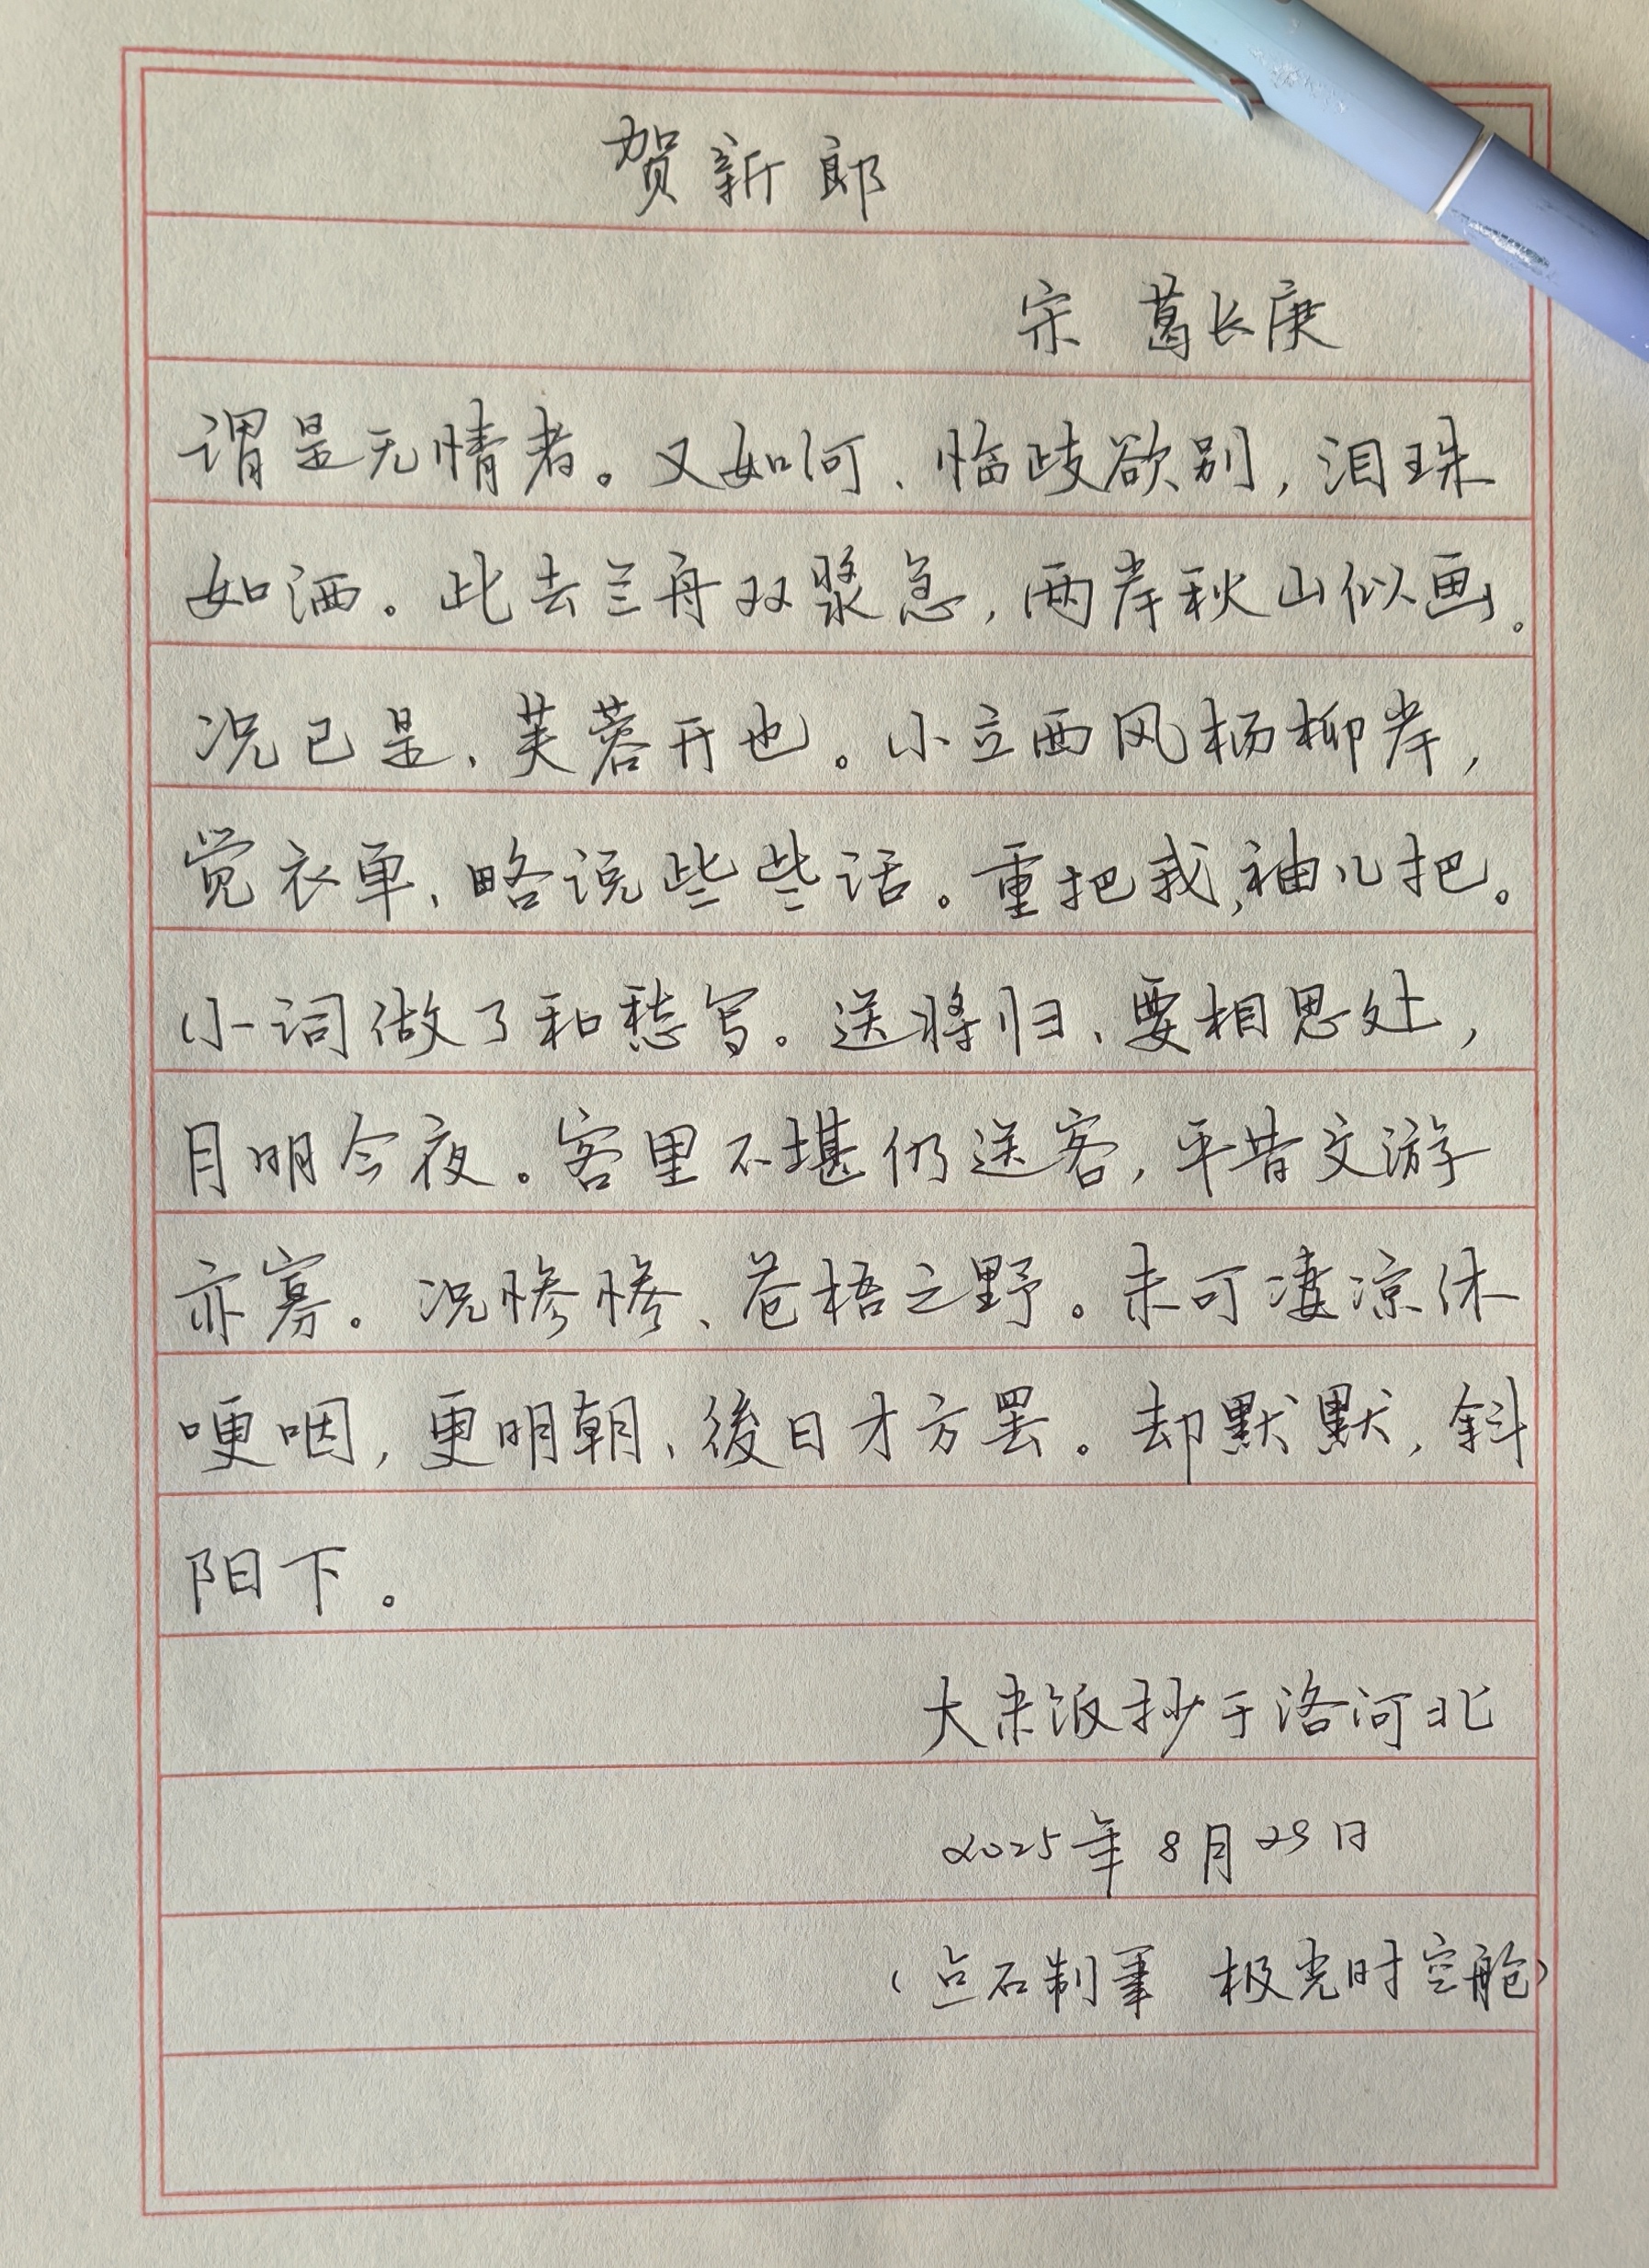 贺新郎
宋 葛长庚
谓是无情者。又如何、临歧欲别，泪珠
如洒。此去兰舟双桨急，两岸秋山似画。
况已是、芙蓉开也。小立西风杨柳岸，
觉衣单、略说些些话。重把我，袖儿把。
小词做了和愁写。送将归、要相思处，
月明今夜。客里不堪仍送客，平昔交游
亦寡。况惨惨、苍梧之野。未可凄凉休
哽咽，更明朝、後日才方罢。却默默，斜
阳下。
大米饭抄于洛河北
2025年8月29日
（点石制笔 极光时空舱）